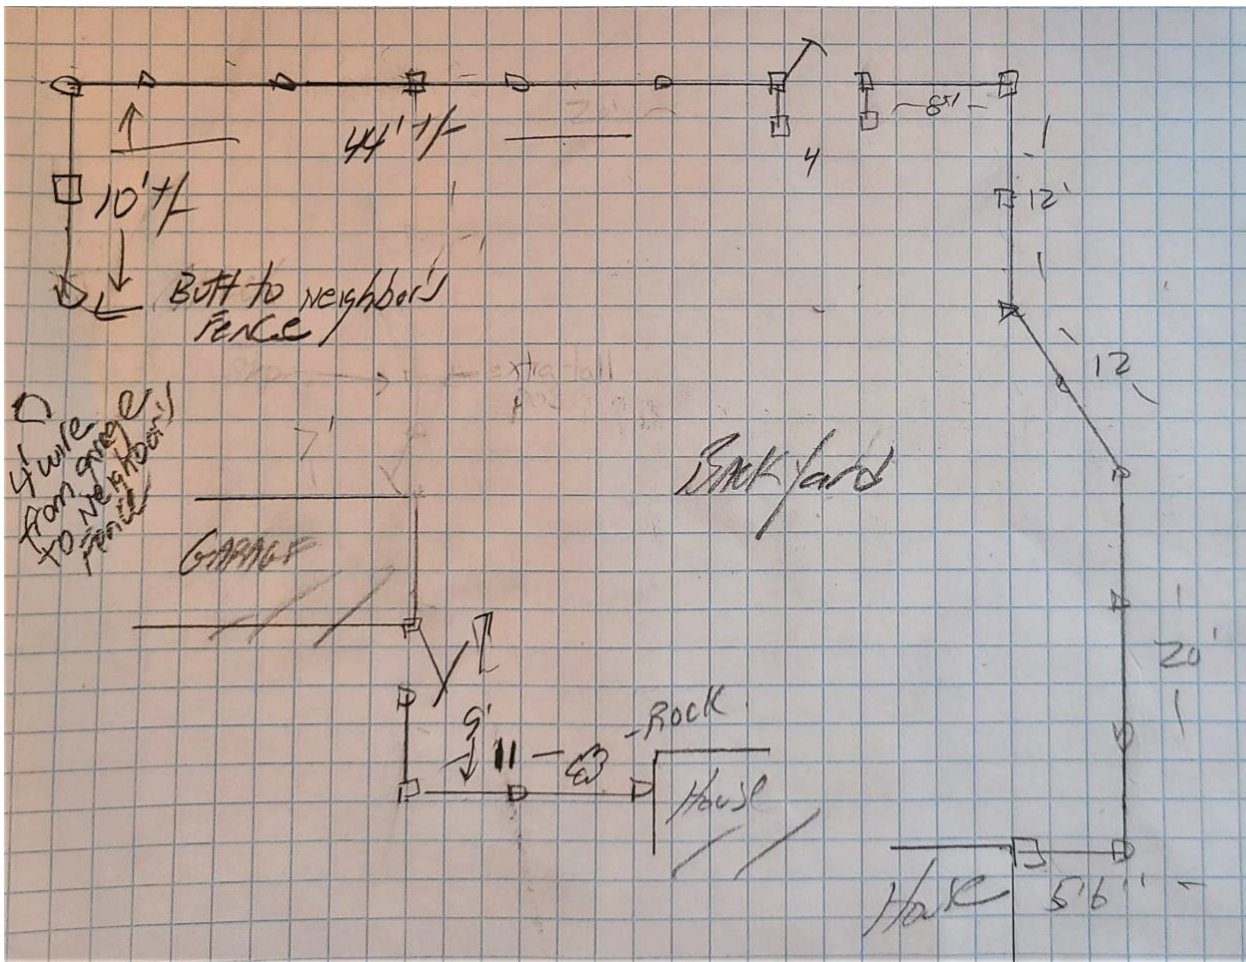 20'
8'
44' +/-
4
12'
10' +/-
Butt to Neighbor's
Fence
extra
12
4' wire
from garage
to Neighbors
Fence
7'
BACKYard
GARAGE
20'
ROCK
9'
11
House
House
5'6"